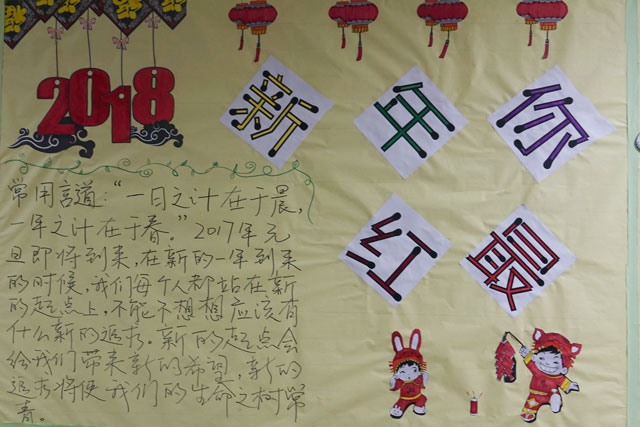 2018
新年你
红最
常用言道：“一日之计在于晨，
一年之计在于春。”2017年元
旦即将到来，在新的一年到来
的时候，我们每个人都站在新
的起点上，不能不想想应该有
什么新的追求。新的起点会
给我们带来新的希望，新的
追求将使我们的生命之树常
青。